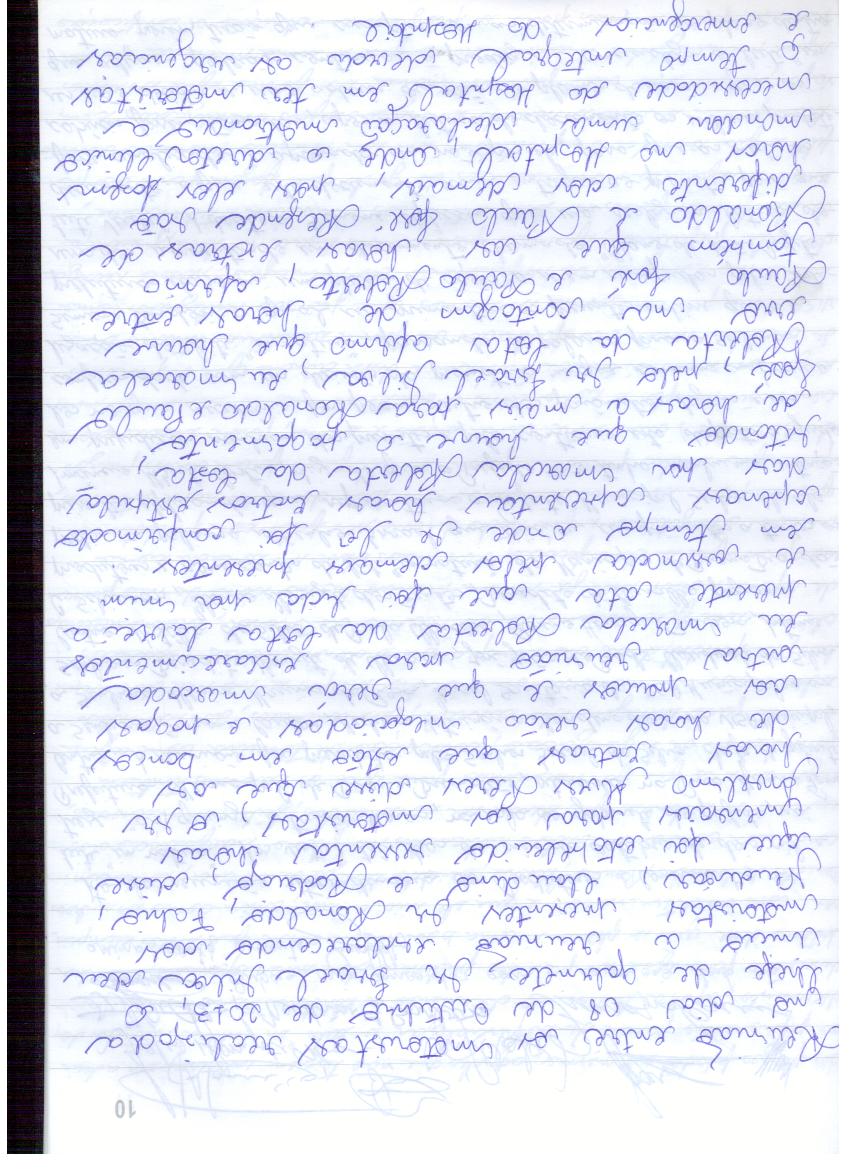 10
Reunião entre os motoristas realizada
no dia 08 de Outubro de 2013, o
chefe de gabinete Sr Israel Silva deu
inicio a reunião esclarecendo aos
motoristas presentes Sr Ronaldo, Fabio,
Claudino e Rodrigo, disse
que foi estabelecido sesentas horas
mensais para os motoristas, o sr
Anselmo Alves Neves disse que as
horas Extras que estão em bancos
de horas serão negociadas e pagas
aos poucos e que será marcada
outra reunião para esclarecimentos
eu marcela Roberta da Costa lavrei a
presente ata que foi lida por mim
e assinada pelos demais presentes
em tempo onde se lê foi confirmado
apenas sesentas horas Extras estipula-
das por marcela Roberta da Costa,
que houve o pagamento
de horas a mais para Ronaldo e Paulo
José, pelo Sr Israel Silva, eu marcela
Roberta da Costa afirmo que houve
erro na contagem de horas entre
Paulo José e Paulo Roberto, afirmo
também que as horas extras de
Ronaldo e Paulo José Rezende são
diferente dos demais, pois eles fazem
horas no Hospital, onde o diretor clinico
mandou uma declaração mostrando a
necessidade do Hospital em ter motoristas
o tempo integral devido as urgencias
e emergencias do Hospital.